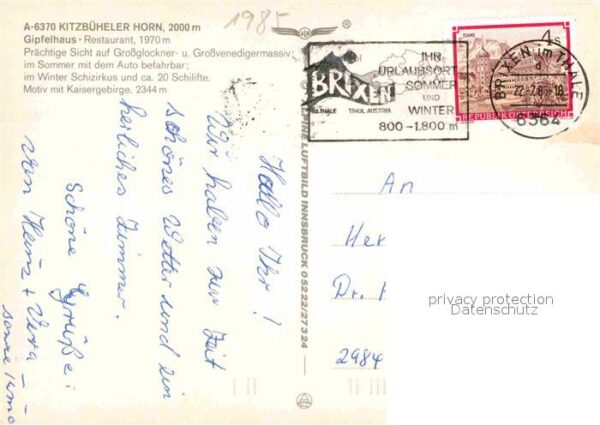 1985
A-6370 KITZBÜHELER HORN, 2000 m
Gipfelhaus - Restaurant, 1970 m
Prächtige Sicht auf Großglockner- u. Großvenedigermassiv
im Sommer mit dem Auto befahrbar;
im Winter Schizirkus und ca. 20 Schilifte.
Motiv mit Kaisergebirge, 2344 m
BRIXEN
IM THALE TIROL AUSTRIA
IHR
URLAUBSORT
SOMMER
UND
WINTER
800 - 1.800 m
STAMS
4 S
REPUBLIK ÖSTERREICH
BRIXEN im THALE
6364
ALPINE LUFTBILD INNSBRUCK 05222/27324
Hallo Ihr!
Wir haben zur Zeit
schönes Wetter und ein
herliches Zimmer.
Schöne Grüße:
von Heinz + Vera
An
Her
Dr.
2984
privacy protection
Datenschutz